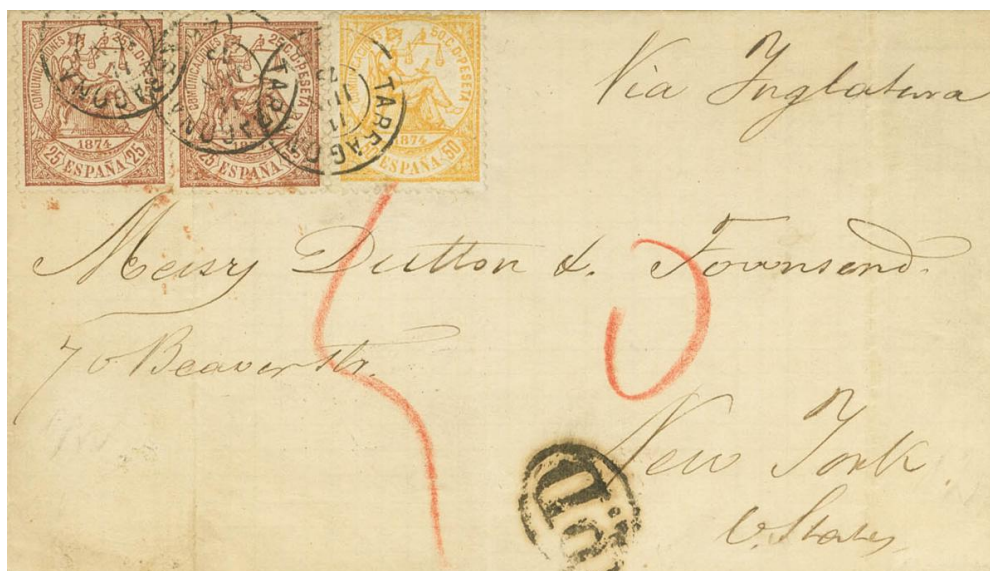 COMUNICACIONES 25 C. PESETA
1874
25 ESPAÑA 25
COMUNICACIONES 25 C. PESETA
1874
25 ESPAÑA 25
COMUNICACIONES 50 C. PESETA
1874
ESPAÑA 50
TARRAGONA
TARRAGONA
TARRAGONA
Via Inglaterra
Messrs Dutton & Townsend.
70 Beaver Str.
New York.
U. States